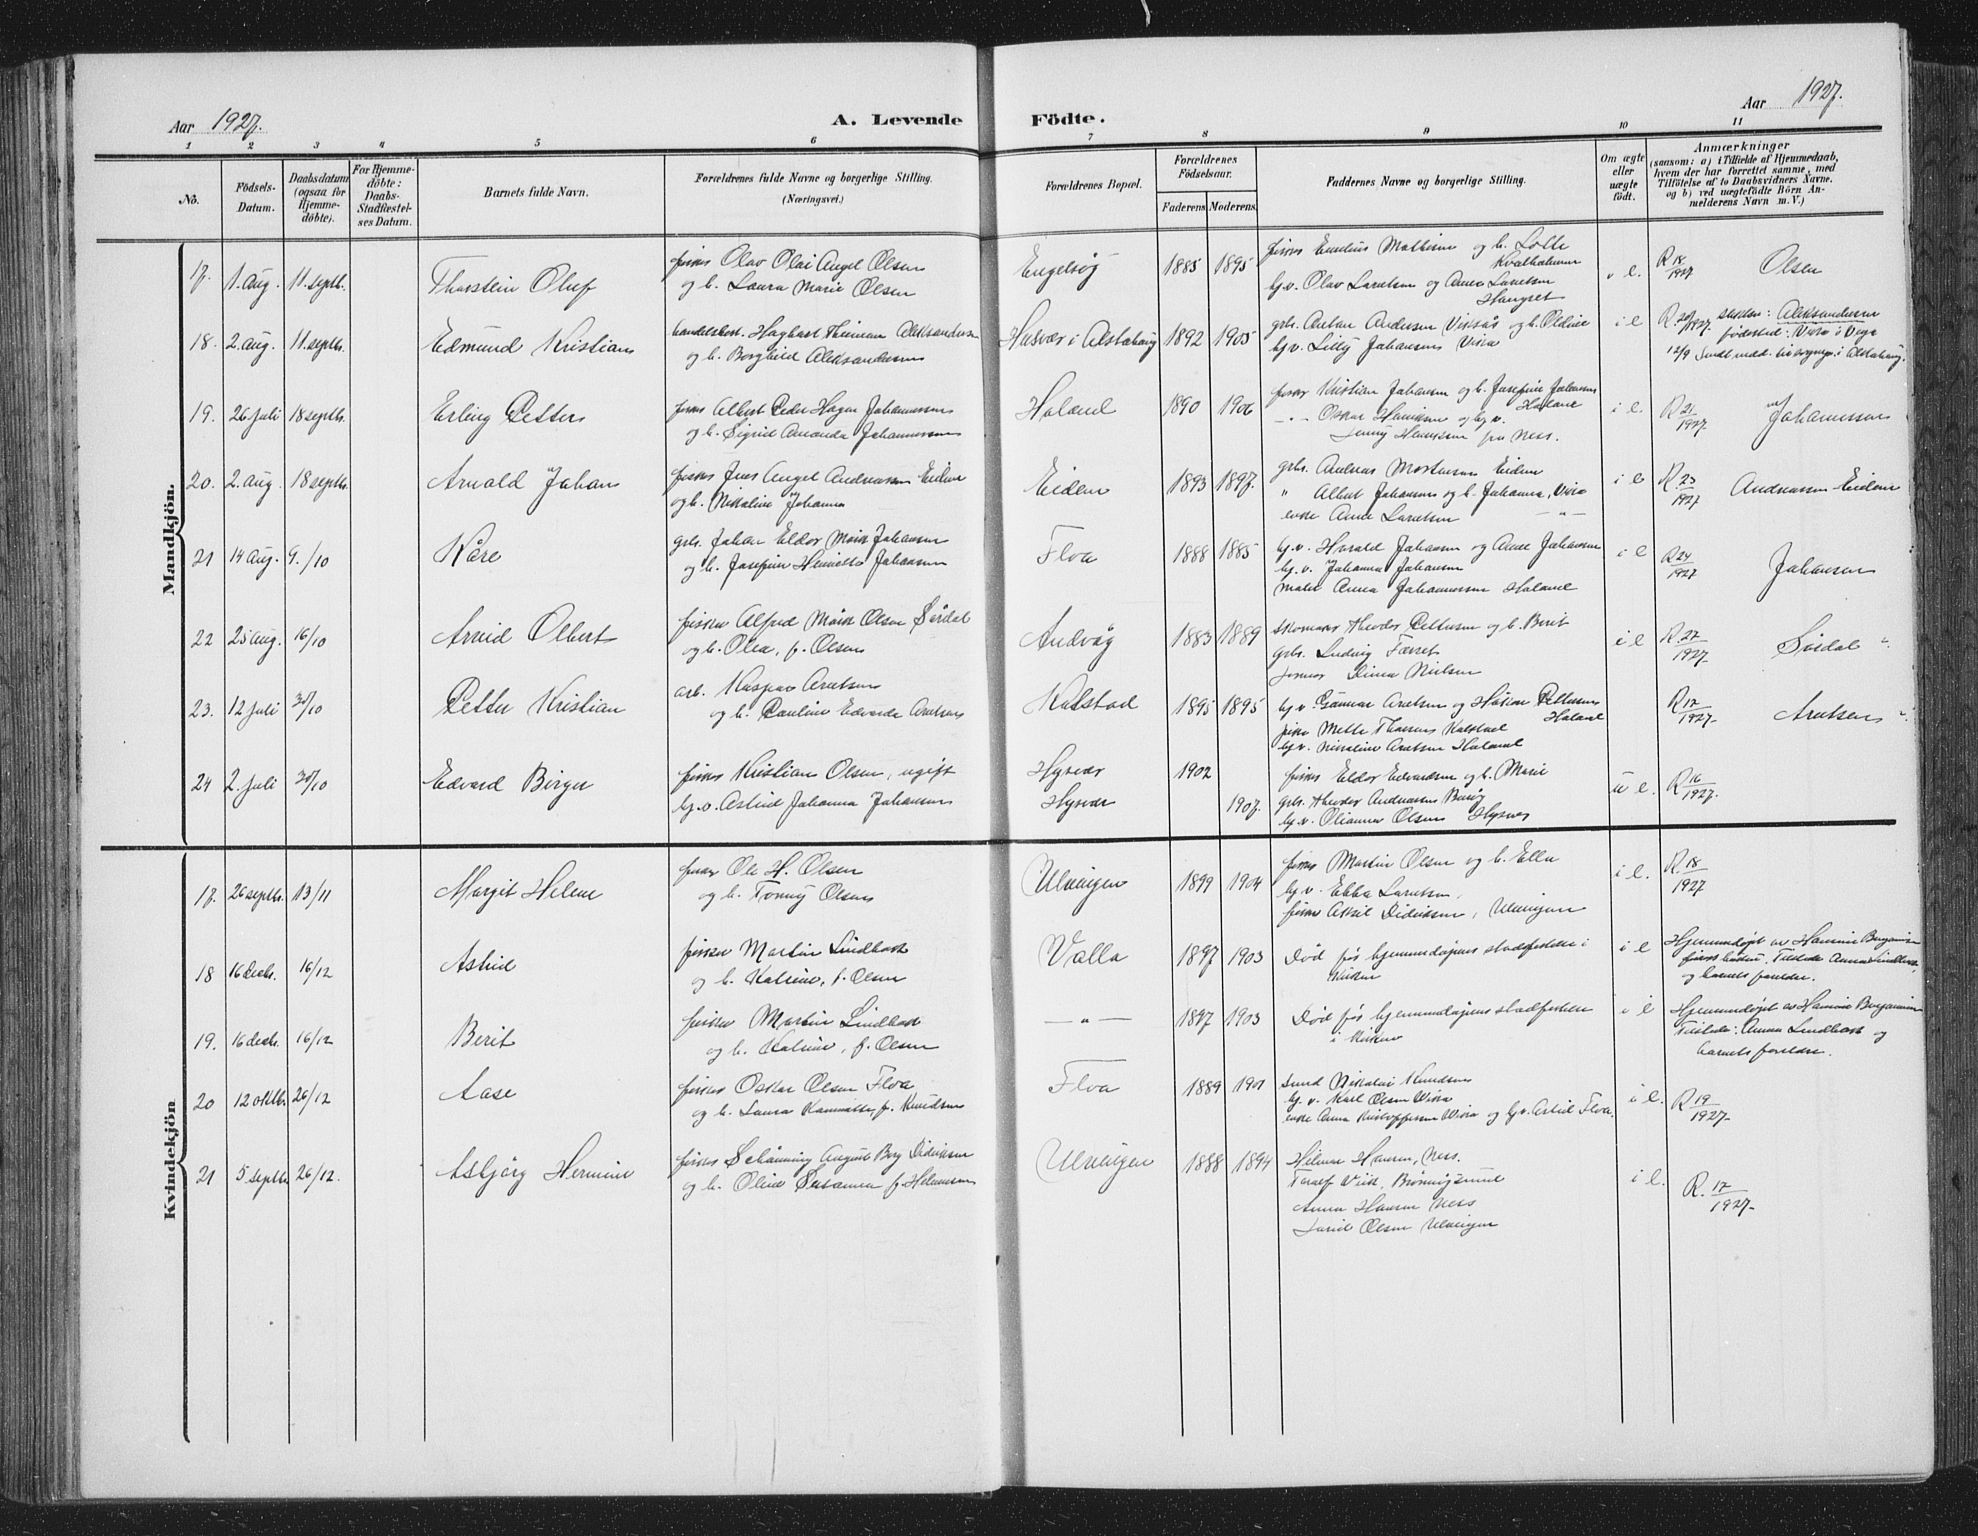 Aar 1927.
A. Levende Födte.
Aar 1927.
1 2 3 4 5 6 7 8 9 10 11
No.
Födsels-Datum.
Daabsdatum (ogsaa for Hjemme-döbte).
For Hjemme-döbte: Daabs-Stadfæstel-ses Datum.
Barnets fulde Navn.
Forældrenes fulde Navne og borgerlige Stilling. (Næringsvei.)
Forældrenes Bopæl.
Forældrenes Födselsaar.
Faderens. Moderens.
Faddernes Navne og borgerlige Stilling.
Om ægte eller uægte födt.
Anmærkninger (saasom: a) i Tilfælde af Hjemmedaab, hvem der har forrettet samme, med Tilföielse af to Daabsvidners Navne. og b) ved uægtefödte Börn An-melderens Navn m. V.)
Mandkjön.
17. 1. Aug. 11. septb. Thorstein Oluf
fisker Olav Olai Angel Olsen
og h. Laura Marie Olsen
Engelsøg 1885 1895
og h. Lotte
Kvalholmen
gv. Olav Laretsen og Anna Laretsen
Hongset
e. R 18/1927 Olsen
18. 2. Aug. 11. septb. Edmund Kristian
handelsbest. Hagbart Aleksandersen
og h. Borghild Aleksandersen
Husvær i Alstahaug 1892 1905
grb. Anton Andersen Viksås og h. Oldine
gv. Lilly Johansen Vika
i e R. 20/1927. Aleksandersen
fødested: i Vega
12/9 Sendt medd. til sognepr. i Alstahaug.
19. 26 juli 18 septb. Erling Petter
fisker Albert Peder Hagen Johannessen
og h. Sigrid Amanda Johannessen
Holand 1890 1906
fisker Kristian Johansen og h. Josefine Johansen
Holand
-"- Oskar og gv.
Jenny fra Ness.
i e R 21/1927 Johannessen
20. 2. Aug. 18 septb. Arnold Johan
fisker Jens Angel Andreassen Eidem
og h. Nikoline Johanna
Eidem 1893 1897.
grb. Andreas Mortensen Eidem
" Albert Johansen og h. Johanna, Vika
enke Anna Laretsen -"-
i e R 23/1927 Andreassen Eidem
21 14 Aug. 9./10 Kåre
grb. Johan Eldor Mørk Johansen
og h. Josefine Henriette Johansen
Flva 1888 1885
gv. Harald Johansen og Anne Johansen
gv. Johanna Johansen
Anna Johannessen Holand
i e R 24/1927 Johansen
22 25 Aug. 16/10 Arvid Olbert
fisker Alfred Mørk Olsen Sørdal
og h. Olea, f. Olsen
Andvåg 1883 1889
skomaker Theodor Pettersen og h. Berit
grb. Ludvig Færset
jormor Dina Nielsen
i e R. 27/1927 "
23. 12 juli 30/10 Petter Kristian
arb. Kaspar Arntsen
og h. Pauline Edvarda Arntsen
Kalstad 1895 1895
gv. Gunnar Arntsen og Håkon Pettersen
Holand
Mette Kalstad
gv. Nikoline Arntsen Holand
R 12/1927. Arntsen
24 2. juli 30/10 Edvard Birger
fisker Kristian Olsen, ugift
gv. Astrid Johanna Johansen
Hysvær
Hysvær
1902
1907.
fisker Eldor Edvardsen og h. Marie
grb. Theodor Andreassen
gv. Olianna Olsen Hysvær
u e. R 16/1927.
Kvindekjön
17. 26 septb. 13/11 Margit Helene
fisker Ole H. Olsen
og h. Olsen
Ulvingen 1899 1904
fisker Martin Olsen og h. Ella
gv. Ebba Laretsen,
fisker Aksel Didriksen, Ulvingen
i e. R. 18/1927
18 16 decb. 16/12 Astrid
fisker Martin Lindbak
og h. Katrine, f. Olsen
Valla 1897 1903
Død før hjemmedåpens stadfestelse i
kirken
i e Hjemmedøpt av Benjaminsen
Tilstede Anna Lindbak,
og barnets foreldre.
19. 16 decb. 16/12 Berit
fisker Martin Lindbak
og h. Katrine, f. Olsen
-"- 1897 1903
Død før hjemmedåpens stadfestelse
i kirken
i e Hjemmedøpt av Benjaminsen
Tilstede: Anna Lindbak og
barnets foreldre.
20 12 oktb. 26/12 Aase
fisker Oskar Olsen Flva
og h. Laura f. Knudsen
Flva 1889 1901
Nikolai Knudsen
gv. Karl Olsen Vika
enke Anna Kristoffersen Vika og gv. Astrid Flva.
i e. R 19/1927.
21 5 septb. 26/12. Asbjørg Hermine
fisker Schønning August Berg Didriksen
og h. Oline Susanna f.
Ulvingen 1888 1894
Hilmar Hansen, Ness.
Toralf Brønnøysund
Anna Hansen Ness
Olsen Ulvingen
i e. R. 17/1927.